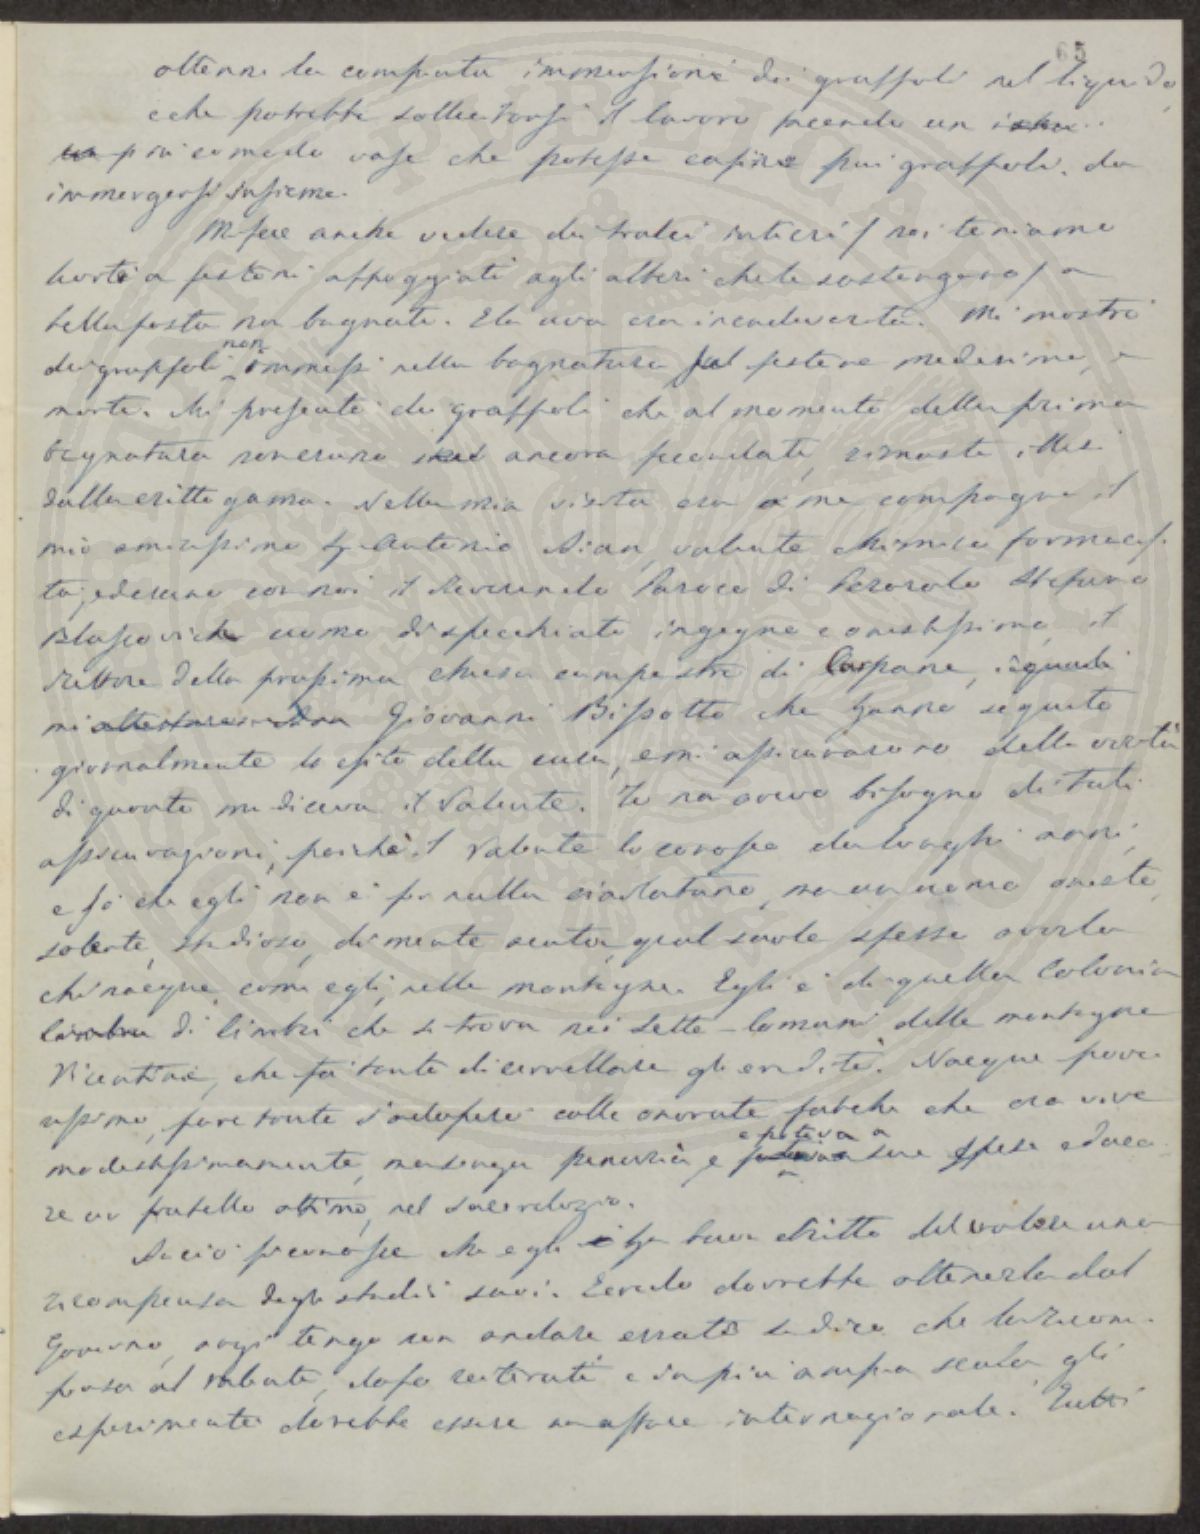 65
ottenere la compiuta immersione dei grappoli nel liquido,
e che potrebbe sollecitarsi il lavoro facendo un
un più comodo vase che potesse capire più grappoli, da
immergersi insieme.
Mi fece anche vedere dei tralci intieri (noi teniamo
le viti a festoni appoggiati agli alberi che le sostengono) a
bella posta non bagnati. E la uva era incadaverita. Mi mostrò
dei grappoli non immessi nella bagnatura sul festone medesimo, e
morti. Mi presentò dei grappoli che al momento della prima
bagnatura non erano ancora fecondati, rimasti illesi
dalla crittogama. Nella mia visita era a me compagno il
mio amicissimo Sr. Antonio Dian, valente chimico farmacis-
ta, ed erano con noi il Reverendo Paroco di Perarolo Stefano
Blascovich uomo di specchiato ingegno e onestissimo, il
Rettore della prossima chiesa campestre di Carpane, i quali
mi attestarono Don Giovanni Bissotto che hanno seguito
giornalmente lo esito della cura, e mi assicurarono della verità
di quanto mi diceva il Valente. Io non aveva bisogno di tali
assicurazioni, poichè il Valente lo conosco da lunghi anni,
e so che egli non è per nulla ciarlatano, ma un uomo onesto,
solerte, studioso, di mente acuta, qual suole spesso averla
chi nacque, come egli, nelle montagne. Egli è di quella Colonia
di Cimbri che si trova nei Sette-Comuni delle montagne
Vicentine, che fa tanto dicervellare gli eruditi. Nacque pove-
rissimo, pure tanto s'adoperò colle onorate fatiche che ora vive
modestissimamente, ma senza penuria, e poteva a sue spese educa-
re un fratello ottimo, nel sacerdozio.
Da ciò si conosce che egli ha buon dritto del volere una
ricompensa degli studii suoi. E credo dovrebbe ottenerla dal
Governo, anzi tengo non andare errato se dico che la ricom-
pensa al Valente, dopo reiterati e in più ampia scala gli
esperimenti dovrebbe essere un affare internazionale. Tutti